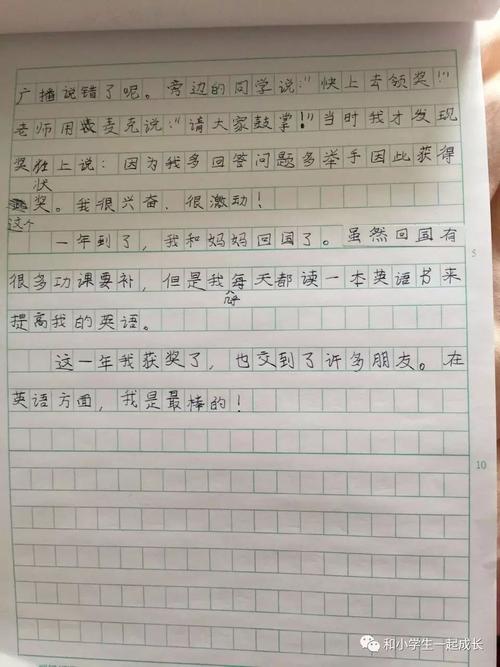 广播说错了呢。旁边的同学说:“快上去领奖!”
老师用麦克说:“请大家鼓掌!”当时我才发现
奖状上说:因为我多回答问题多举手因此获得
状
这个奖。我很兴奋、很激动!
一年到了,我和妈妈回国了。虽然回国有
很多功课要补,但是我每天都读一本英语书来
提高我的英语。
这一年我获奖了,也交到了许多朋友。在
英语方面,我是最棒的!
5
10
和小学生一起成长